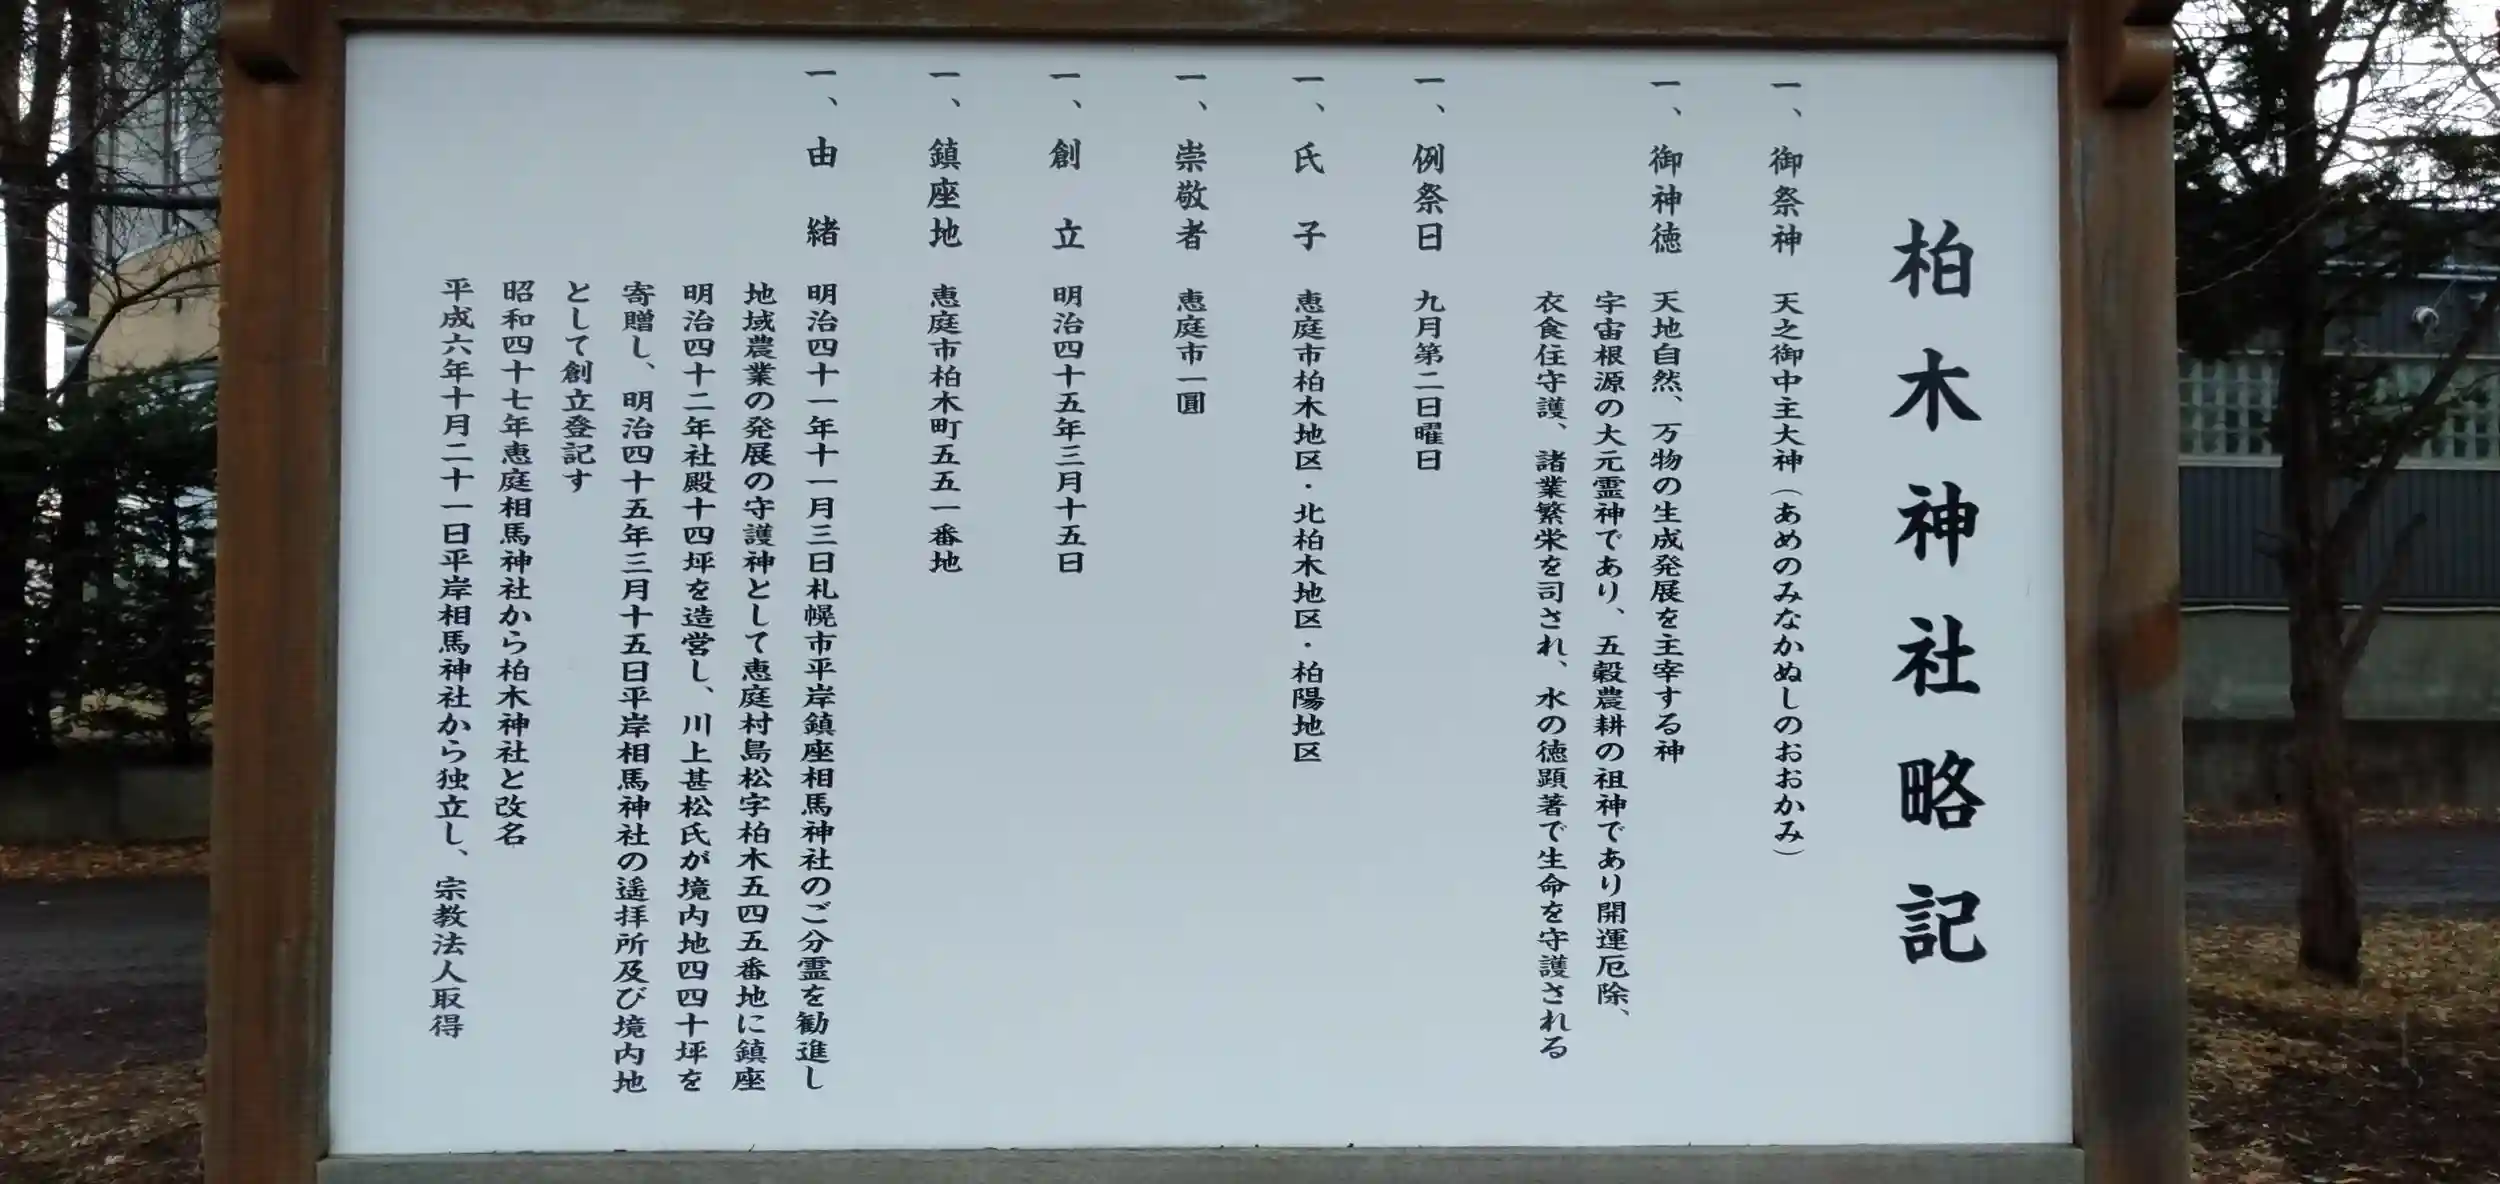 柏木神社略記
一、御祭神 天之御中主大神（あめのみなかぬしのおおかみ）
一、御神徳 天地自然、万物の生成発展を主宰する神
宇宙根源の大元霊神であり、五穀農耕の祖神であり開運厄除、
衣食住守護、諸業繁栄を司され、水の徳顕著で生命を守護される
一、例祭日 九月第二日曜日
一、氏子 恵庭市柏木地区・北柏木地区・柏陽地区
一、崇敬者 恵庭市一圓
一、創立 明治四十五年三月十五日
一、鎮座地 恵庭市柏木町五五一番地
一、由緒 明治四十一年十一月三日札幌市平岸鎮座相馬神社のご分霊を勧進し
地域農業の発展の守護神として恵庭村島松字柏木五四五番地に鎮座
明治四十二年社殿十四坪を造営し、川上甚松氏が境内地四四十坪を
寄贈し、明治四十五年三月十五日平岸相馬神社の遥拝所及び境内地
として創立登記す
昭和四十七年恵庭相馬神社から柏木神社と改名
平成六年十月二十一日平岸相馬神社から独立し、宗教法人取得